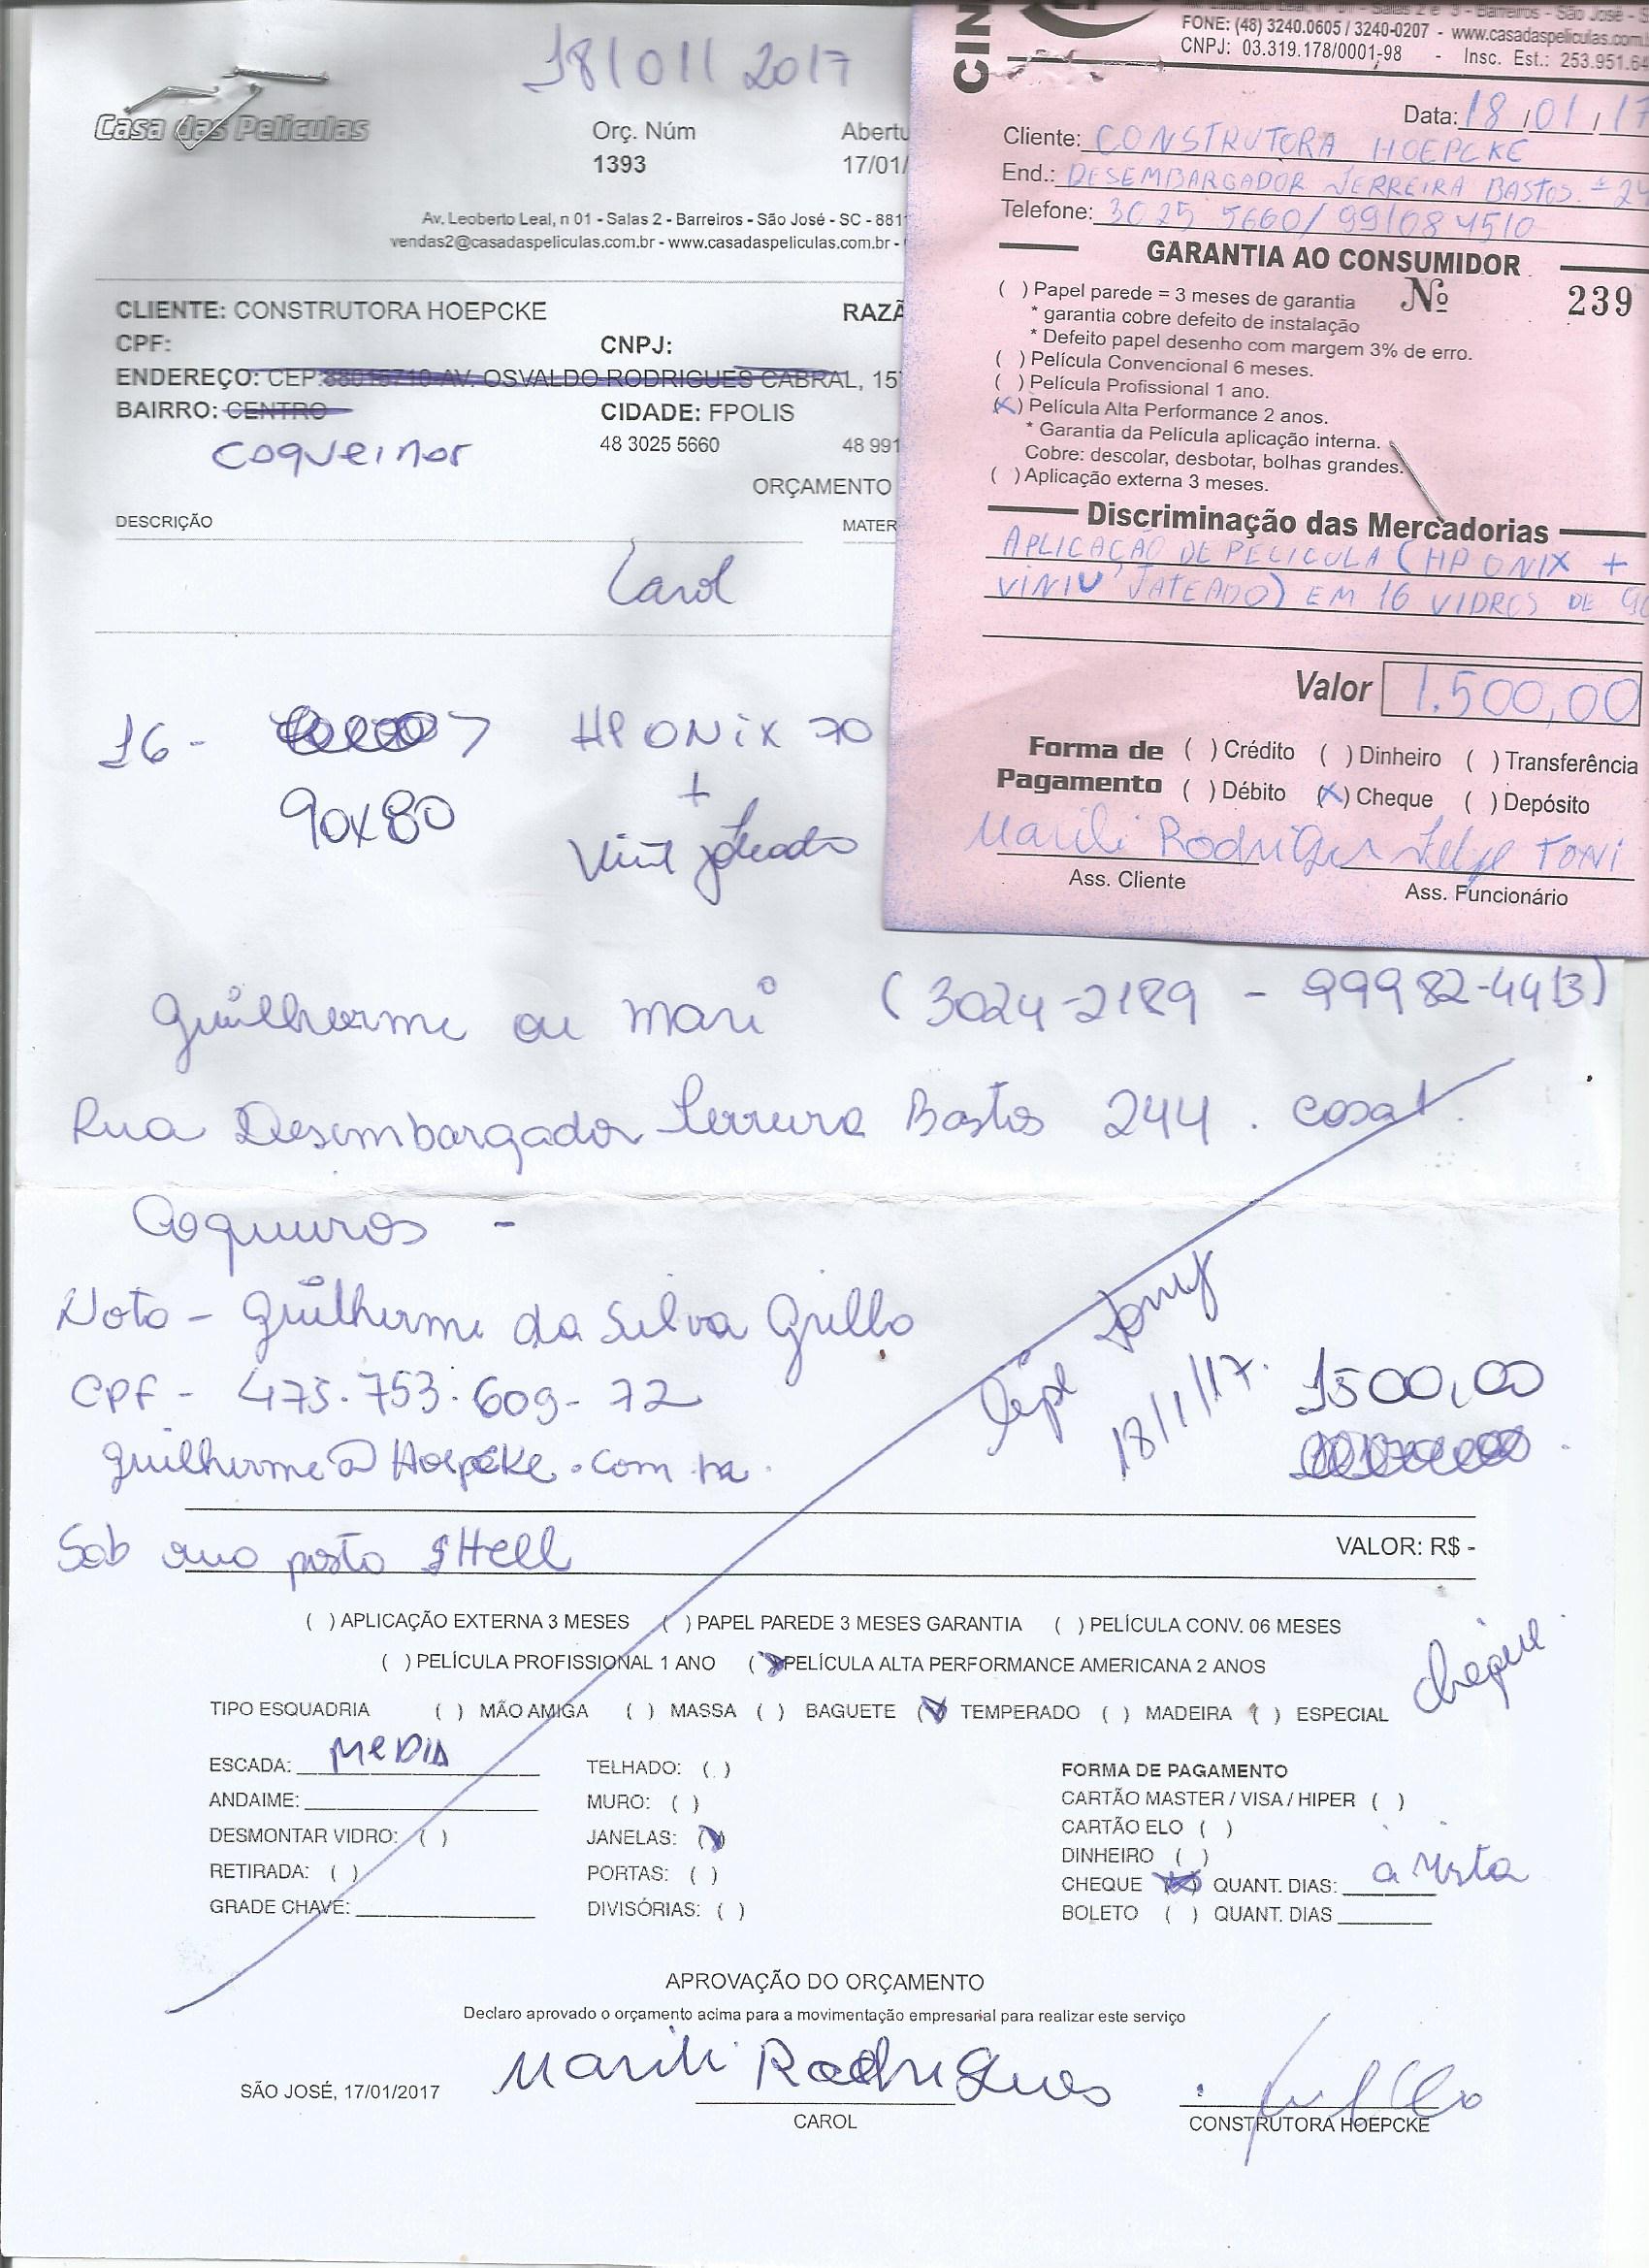 18/01/2017
Casa das Películas
Orç. Núm
1393
Abertu
17/01/
Av. Leoberto Leal, n 01 - Salas 2 - Barreiros - São José - SC - 881
vendas2@casadaspeliculas.com.br - www.casadaspeliculas.com.br -
CLIENTE: CONSTRUTORA HOEPCKE
RAZÃ
CPF:
CNPJ:
ENDEREÇO: CEP:88015710-AV. OSVALDO RODRIGUES CABRAL, 15
BAIRRO: CENTRO
CIDADE: FPOLIS
Coqueiros
48 3025 5660
48 991
ORÇAMENTO
DESCRIÇÃO
MATER
Carol
16 -
HP ONIX 70
+
90x80
Vinil jateado
CIN
FONE: (48) 3240.0605 / 3240-0207 - www.casadaspeliculas.com.
CNPJ: 03.319.178/0001-98 - Insc. Est.: 253.951.64
Data: 18/01/17
Cliente: CONSTRUTORA HOEPCKE
End.: DESEMBARGADOR FERREIRA BASTOS 24
Telefone: 3025 5660/ 991084510
GARANTIA AO CONSUMIDOR
Nº 239
( ) Papel parede = 3 meses de garantia
* garantia cobre defeito de instalação
* Defeito papel desenho com margem 3% de erro.
( ) Película Convencional 6 meses.
( ) Película Profissional 1 ano.
(X) Película Alta Performance 2 anos.
* Garantia da Película aplicação interna.
Cobre: descolar, desbotar, bolhas grandes.
( ) Aplicação externa 3 meses.
Discriminação das Mercadorias
APLICAÇÃO DE PELICULA (HP ONIX +
VINIU JATEADO) EM 16 VIDROS DE 90
Valor 1.500,00
Forma de Pagamento
( ) Crédito ( ) Dinheiro ( ) Transferência
( ) Débito (X) Cheque ( ) Depósito
Marili Rodrigues Felipe TONI
Ass. Cliente
Ass. Funcionário
Guilherme ou Mari (3024-2189 - 99982-4413)
Rua Desembargador Ferreira Bastos 244. casa1
Coqueiros -
Nota - Guilherme da Silva Grillo
CPF - 473.753.609-72
guilherme@Hoepcke.com.br
18/1/17.
1500,00
Sob ano posto SHell
VALOR: R$ -
( ) APLICAÇÃO EXTERNA 3 MESES ( ) PAPEL PAREDE 3 MESES GARANTIA ( ) PELÍCULA CONV. 06 MESES
( ) PELÍCULA PROFISSIONAL 1 ANO (X) PELÍCULA ALTA PERFORMANCE AMERICANA 2 ANOS
cheque
TIPO ESQUADRIA ( ) MÃO AMIGA ( ) MASSA ( ) BAGUETE (X) TEMPERADO ( ) MADEIRA ( ) ESPECIAL
ESCADA: MEDIA
ANDAIME:
DESMONTAR VIDRO: ( )
RETIRADA: ( )
GRADE CHAVE:
TELHADO: ( )
MURO: ( )
JANELAS: (X)
PORTAS: ( )
DIVISÓRIAS: ( )
FORMA DE PAGAMENTO
CARTÃO MASTER / VISA / HIPER ( )
CARTÃO ELO ( )
DINHEIRO ( )
CHEQUE (X) QUANT. DIAS: à vista
BOLETO ( ) QUANT. DIAS
APROVAÇÃO DO ORÇAMENTO
Declaro aprovado o orçamento acima para a movimentação empresarial para realizar este serviço
SÃO JOSÉ, 17/01/2017
Marili Rodrigues
CAROL
CONSTRUTORA HOEPCKE